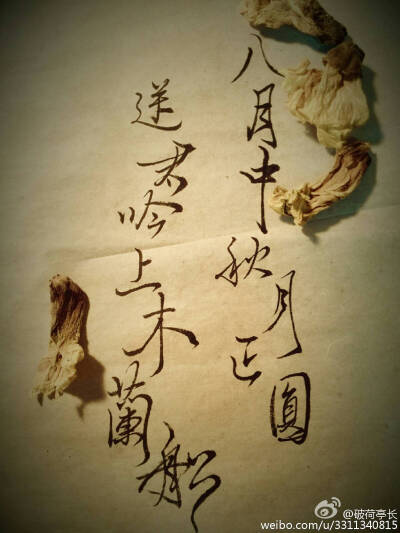 八月中秋月正圓
送君吟上木蘭船
@破荷亭长
weibo.com/u/3311340815